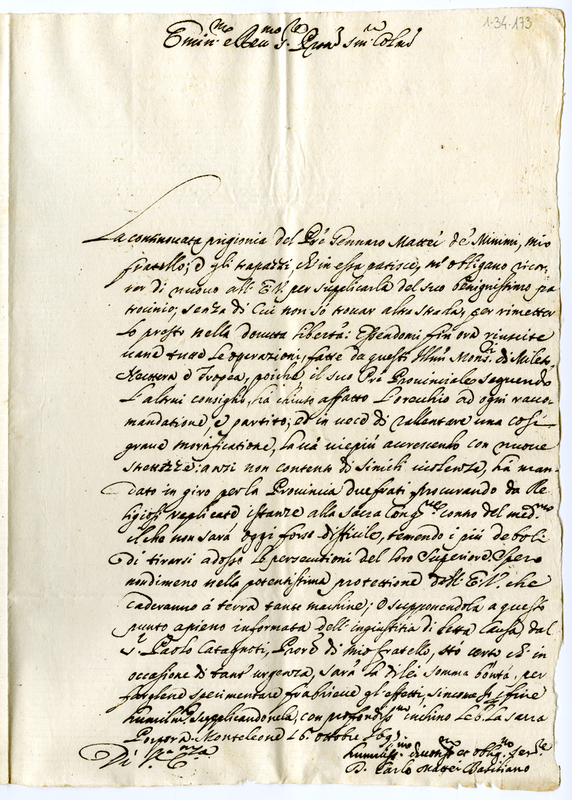 1-34-173
Emin.mo e Rev.mo S.r Pron.e
La continuata prigionia del Pre Gennaro Mattei de Minimi, mio
fratello; e gli strapazzi, ch'in essa patisce, m'obligano ricor-
rer di nuovo all'E.V. per supplicarla del suo benignissimo pa-
trocinio; senza di cui non sò trovar altra strada, per rimetter
lo presto nella dovuta libertà: Essendomi fin ora riuscite
vane tutte le operazioni, fatte da questi Mons.ri di Mileto
Nocera e Tropea, poiche il suo Pre Provinciale seguendo
l'altrui consiglio, hà chiuso affatto l'orecchio ad ogni racco-
mandatione, e partito; ed in vece di rallentare una così
grave mortificatione, la và viepiù accrescendo con nuove
stentezze: anzi non contento di simili violenze, hà man-
dato in giro per la Provincia due frati procurando da Re-
ligiosi replicate istanze alla Sacra Cong.ne contro del med.mo
Il che non sarà oggi forse difficile, temendo i più deboli
di tirarsi adosso le persecutioni del loro Superiore. Spero
nondimeno nella potentissima protettione dell'E.V. che
caderanno à terra tante machine; e supponendola a questo
punto apieno informata dell'ingiustitia di detta Causa dal
S.r Paolo Catagnoti, Pror.e di mio fratello, stò certo ch'in
occasione di tant'urgenza, sarà la di lei somma bontà, per
fargliene sperimentare frà brieve gl'effetti, sincome
humilm.te supplicandonela, con profondiss.mo inchino le b. la sacra
Porpora. Monteleone 16 ottobre 169
Di V.ra Em.za
humiliss.mo devotiss.mo et oblig.mo ser.re
D. Carlo Mattei Basiliano